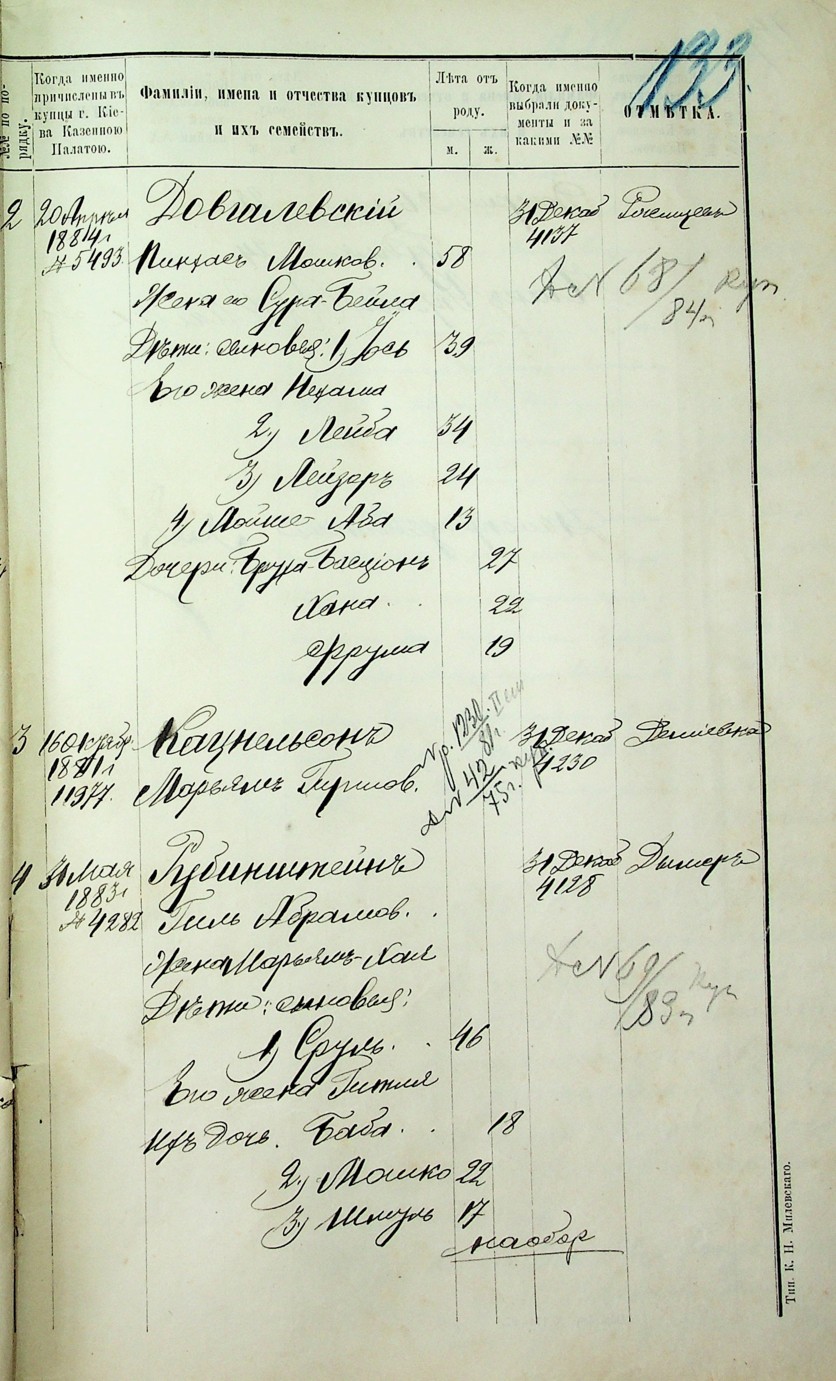 133.
№№ по по-
рядку.
Когда именно
причислены въ
купцы г. Кіе-
ва Казенною
Палатою.
Фамиліи, имена и отчества купцовъ
и ихъ семействъ.
Лѣта отъ
роду.
м.
ж.
Когда именно
выбрали доку-
менты и за
какими №№
ОТМѢТКА.
2
20 Апрѣля
1884 г
№ 5493
Довгалевскій
31 Декаб
4137
Пинхасъ Мошков.
58
Жена его Сура-Бейла
Д № 68/84 г Куп.
Дѣти: сыновья: 1) Іось
39
Его жена Нехама
2) Лейба
34
3) Лейзоръ
24
4) Мойше Аба
13
Дочери: Бруха-Басціонъ
27
Хана
22
Фрума
19
3
16 Октябр.
1881 г
11977.
Кацнельсонъ
31 Декаб
4230
Деміевка
Марьямъ Гириов.
№ р. 1230
81 г.
Д № 42
75 г. куп.
4
31 Мая
1883 г
№ 4282
Рубинштейнъ
31 Декаб
4128
Дымеръ
Гиль Абрамов.
Жена Марьямъ-Хая
Д № 69/83 г Куп
Дѣти: сыновья:
1) Сруль.
46
Его жена Гитля
Ихъ дочь. Баба.
18
2) Мошко
22
3) Шмуль
17
на обор
Тип. К. Н. Милевскаго.